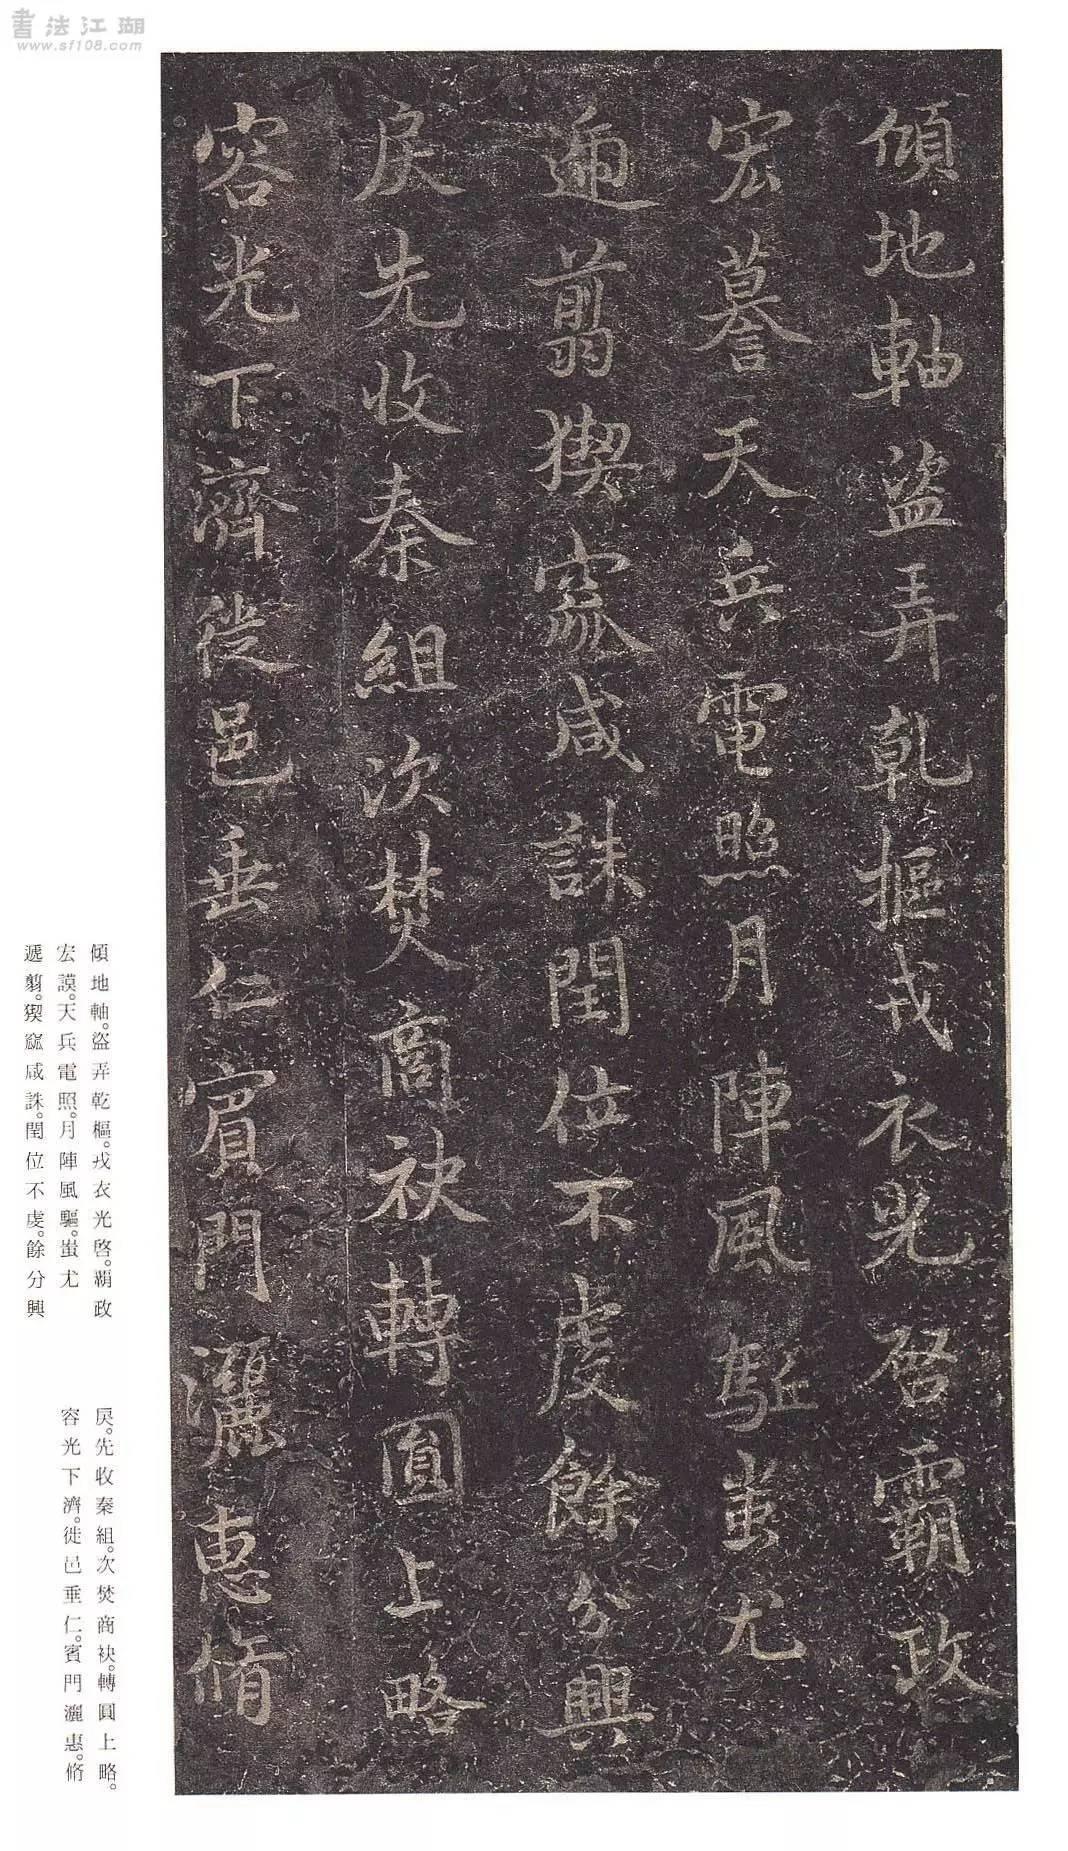 書法江湖
www.sf108.com
傾地軸盜弄乾樞戎衣光啓霸政
宏謩天兵電照月陣風駈蚩尤
遞翦猰窳咸誅閏位不虔餘分興
戾先收秦組次焚商袂轉圓上略
容光下濟徙邑垂仁賓門灑惠脩
傾地軸。盜弄乾樞。戎衣光啓。霸政
宏謨。天兵電照。月陣風驅。蚩尤
遞翦。猰窳咸誅。閏位不虔。餘分興
戾。先收秦組。次焚商袂。轉圓上略。
容光下濟。徙邑垂仁。賓門灑惠。脩